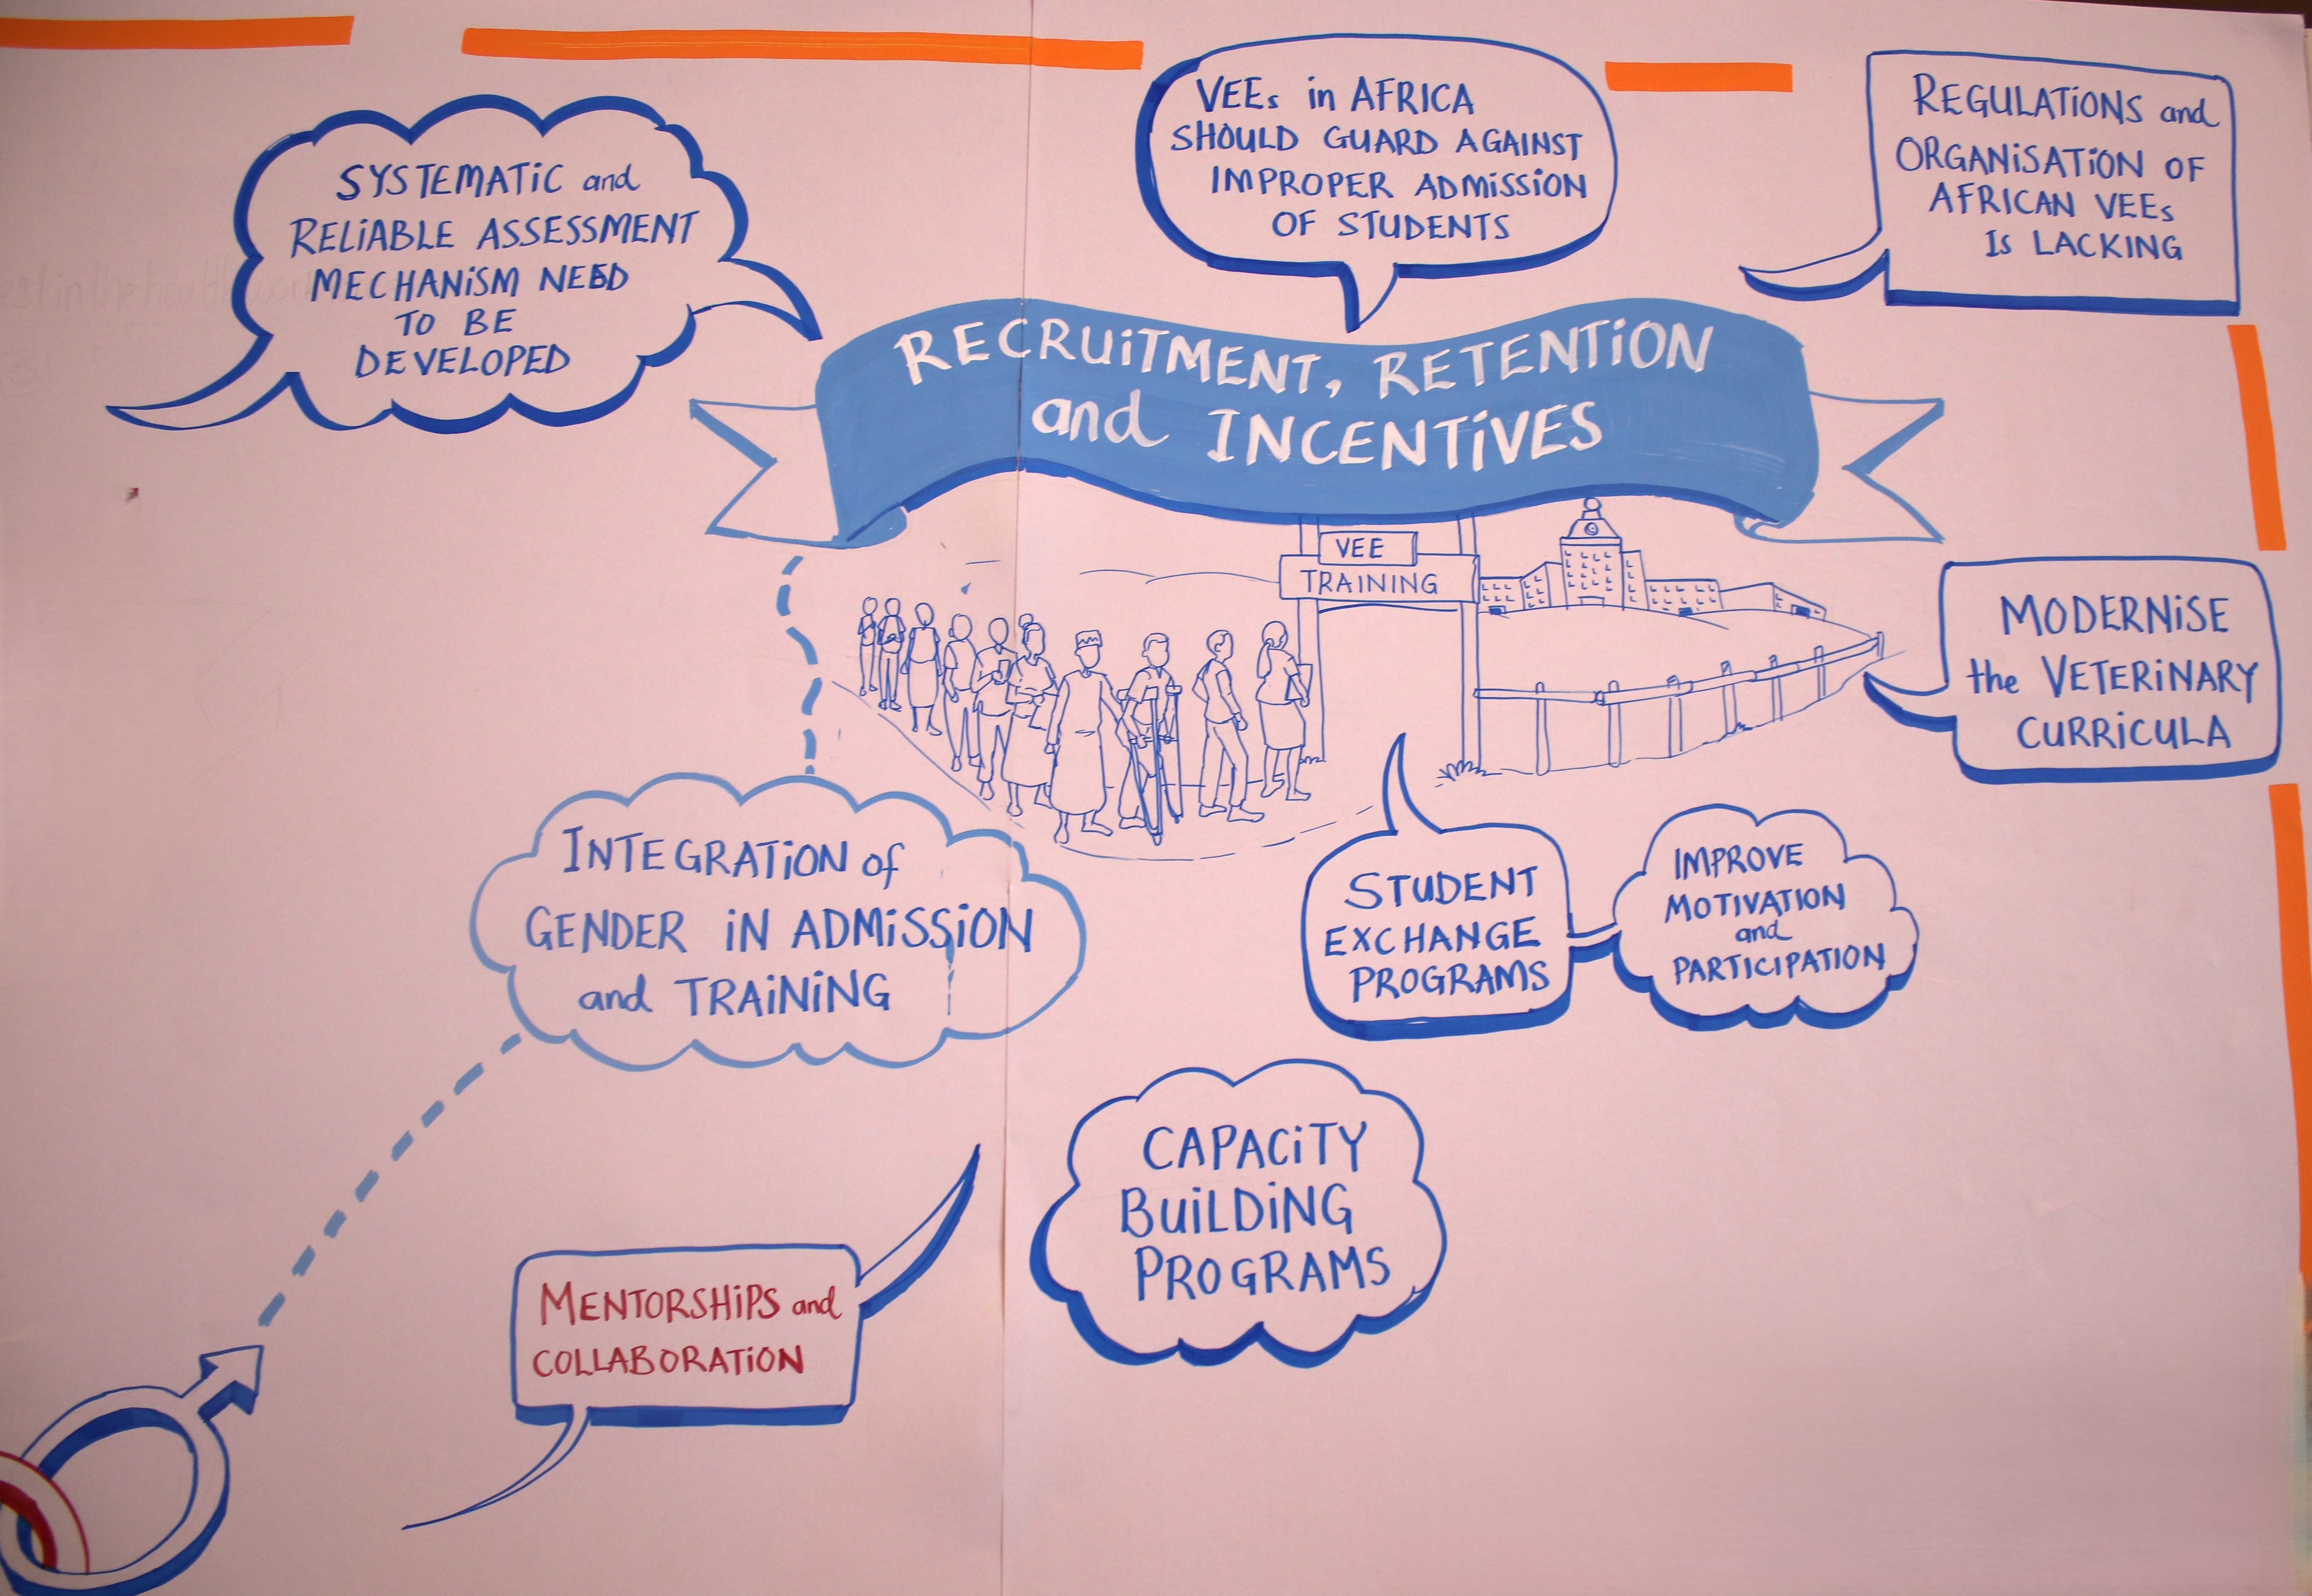 SYSTEMATIC and
RELIABLE ASSESSMENT
MECHANISM NEED
TO BE
DEVELOPED
VEEs in AFRICA
SHOULD GUARD AGAINST
IMPROPER ADMISSION
OF STUDENTS
REGULATIONS and
ORGANISATION OF
AFRICAN VEEs
Is LACKING
RECRUITMENT, RETENTION
and INCENTIVES
VEE
TRAINING
MODERNISE
the VETERINARY
CURRICULA
INTEGRATION of
GENDER IN ADMISSION
and TRAINING
STUDENT
EXCHANGE
PROGRAMS
IMPROVE
MOTIVATION
and
PARTICIPATION
CAPACITY
BUILDING
PROGRAMS
MENTORSHIPS and
COLLABORATION